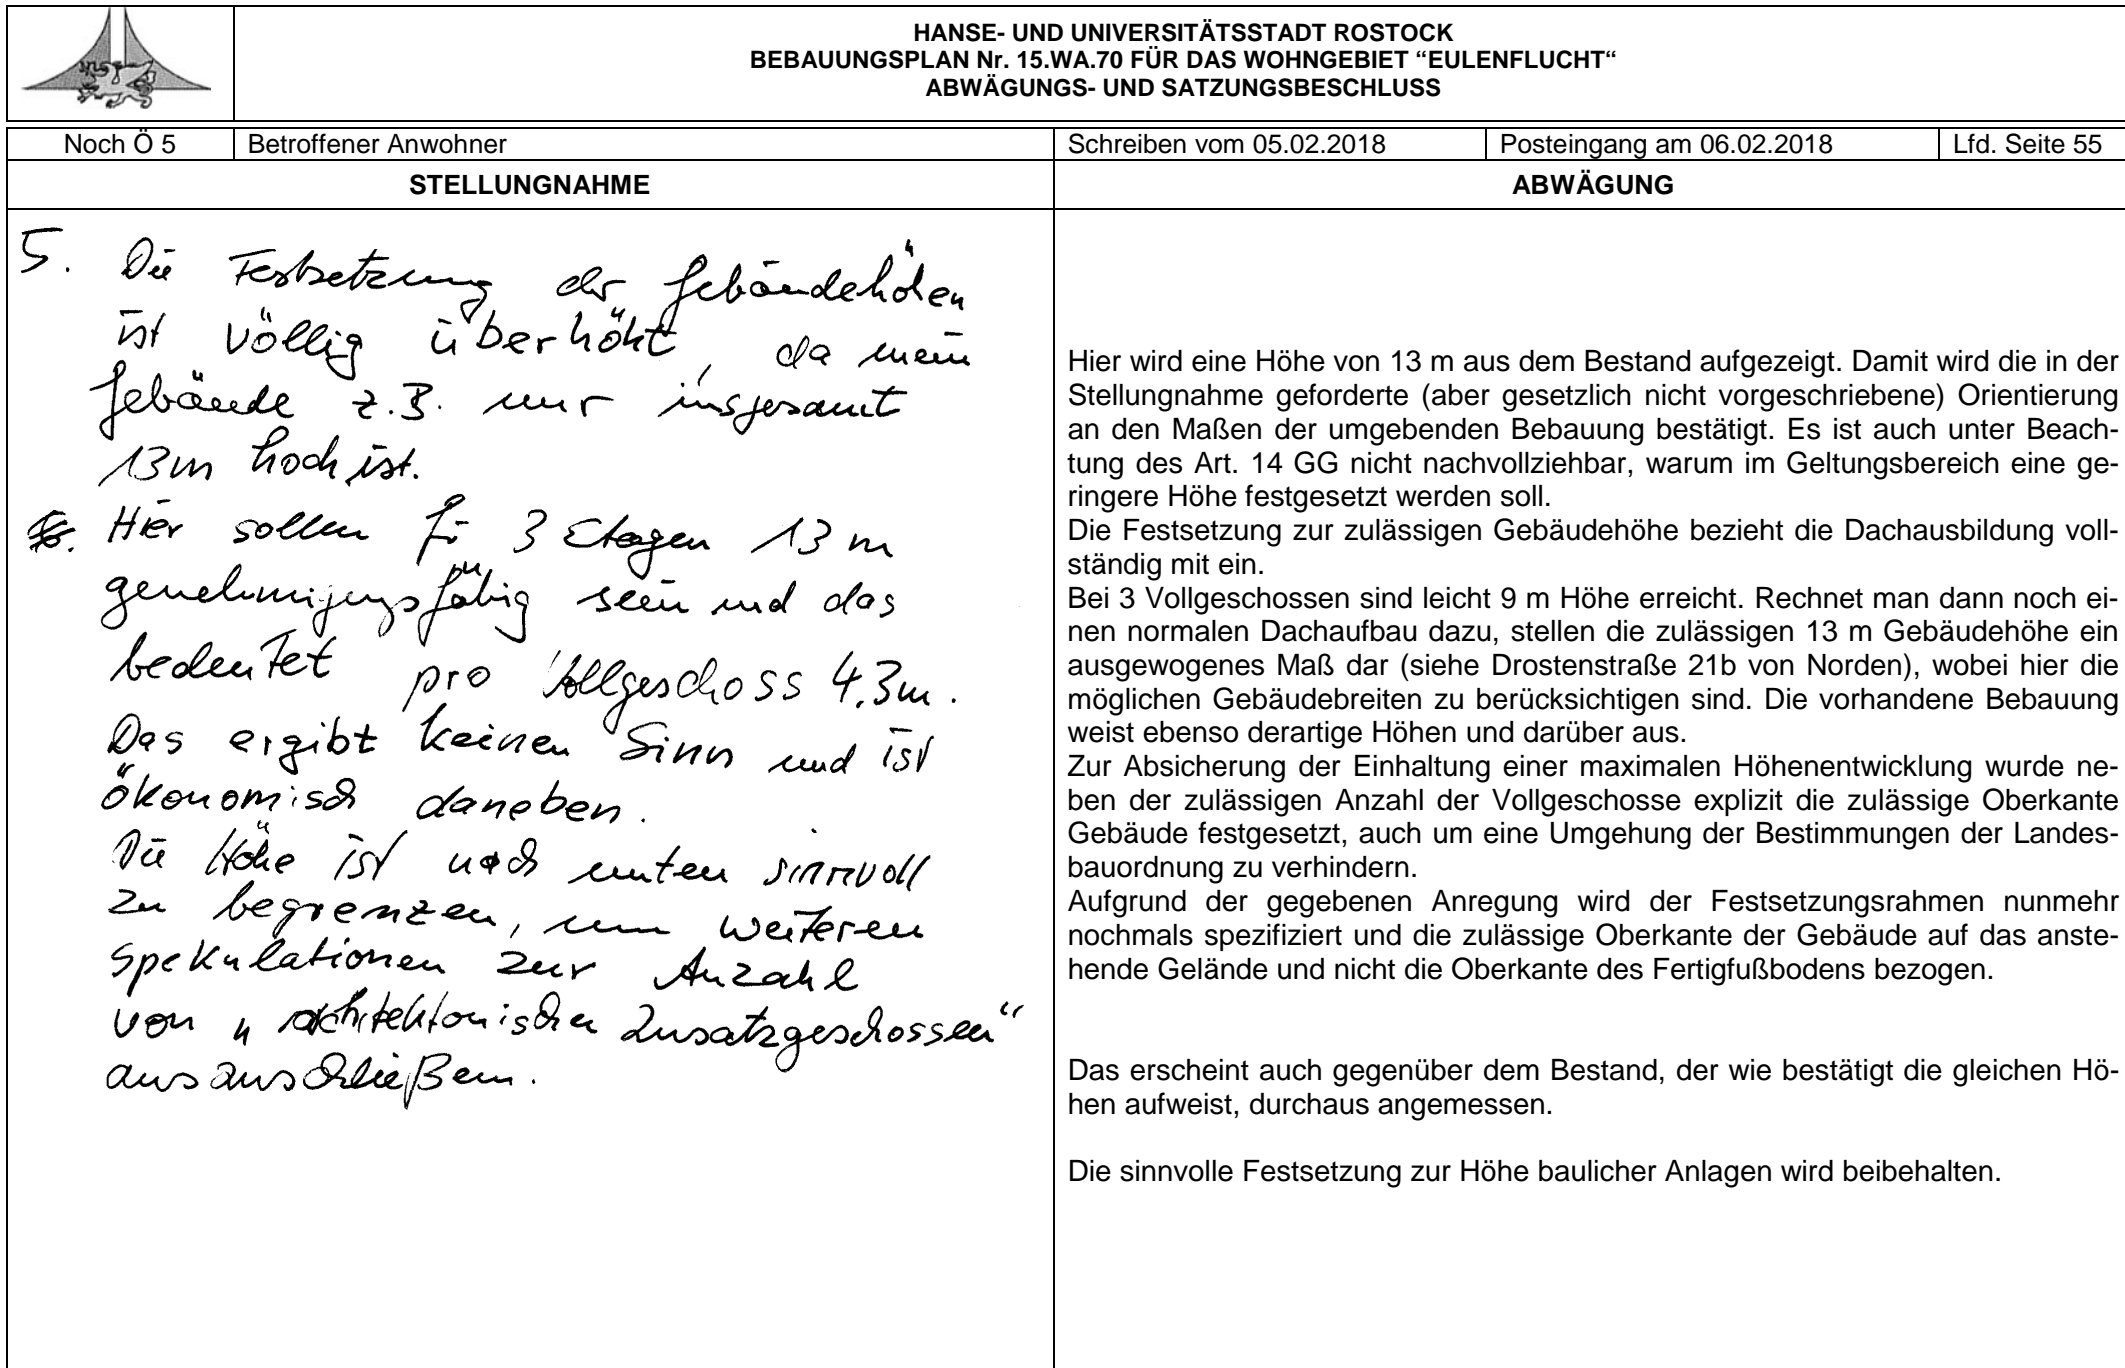 HANSE- UND UNIVERSITÄTSSTADT ROSTOCK
BEBAUUNGSPLAN Nr. 15.WA.70 FÜR DAS WOHNGEBIET “EULENFLUCHT“
ABWÄGUNGS- UND SATZUNGSBESCHLUSS
Noch Ö 5 Betroffener Anwohner Schreiben vom 05.02.2018 Posteingang am 06.02.2018 Lfd. Seite 55
STELLUNGNAHME
5. Die Festsetzung der Gebäudehöhen
ist völlig überhöht, da mein
Gebäude z.B. nur insgesamt
13m hoch ist.
Hier sollen für 3 Etagen 13 m
genehmigungsfähig sein und das
bedeutet pro Vollgeschoss 4,3m.
Das ergibt keinen Sinn und ist
ökonomisch daneben.
Die Höhe ist nach unten sinnvoll
zu begrenzen, um weiteren
Spekulationen zur Anzahl
von „architektonischen Zusatzgeschossen“
auszuschließen.
ABWÄGUNG
Hier wird eine Höhe von 13 m aus dem Bestand aufgezeigt. Damit wird die in der
Stellungnahme geforderte (aber gesetzlich nicht vorgeschriebene) Orientierung
an den Maßen der umgebenden Bebauung bestätigt. Es ist auch unter Beach-
tung des Art. 14 GG nicht nachvollziehbar, warum im Geltungsbereich eine ge-
ringere Höhe festgesetzt werden soll.
Die Festsetzung zur zulässigen Gebäudehöhe bezieht die Dachausbildung voll-
ständig mit ein.
Bei 3 Vollgeschossen sind leicht 9 m Höhe erreicht. Rechnet man dann noch ei-
nen normalen Dachaufbau dazu, stellen die zulässigen 13 m Gebäudehöhe ein
ausgewogenes Maß dar (siehe Drostenstraße 21b von Norden), wobei hier die
möglichen Gebäudebreiten zu berücksichtigen sind. Die vorhandene Bebauung
weist ebenso derartige Höhen und darüber aus.
Zur Absicherung der Einhaltung einer maximalen Höhenentwicklung wurde ne-
ben der zulässigen Anzahl der Vollgeschosse explizit die zulässige Oberkante
Gebäude festgesetzt, auch um eine Umgehung der Bestimmungen der Landes-
bauordnung zu verhindern.
Aufgrund der gegebenen Anregung wird der Festsetzungsrahmen nunmehr
nochmals spezifiziert und die zulässige Oberkante der Gebäude auf das anste-
hende Gelände und nicht die Oberkante des Fertigfußbodens bezogen.
Das erscheint auch gegenüber dem Bestand, der wie bestätigt die gleichen Hö-
hen aufweist, durchaus angemessen.
Die sinnvolle Festsetzung zur Höhe baulicher Anlagen wird beibehalten.